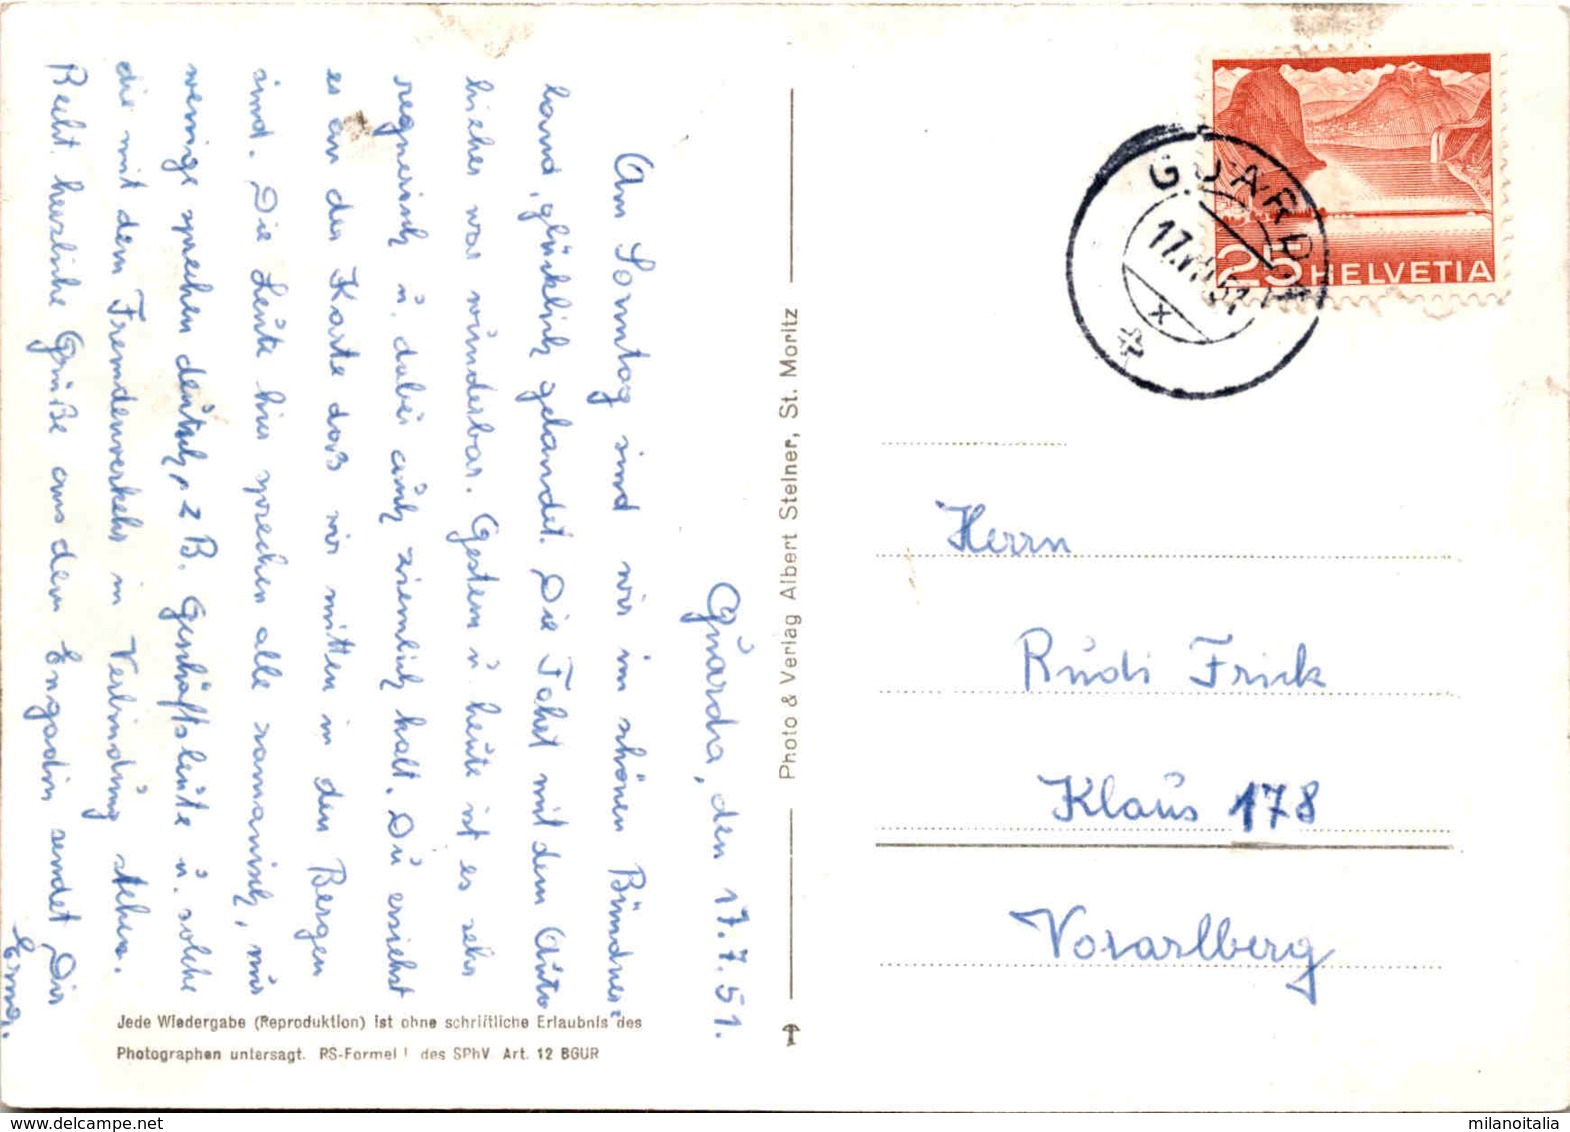 Guarda, den 17.7.51.
Am Sonntag sind wir im schönen Bündner-
land, glücklich gelandet. Die Fahrt mit dem Auto
hieher war wunderbar. Gestern u. heute ist es sehr
regnerisch u. dabei auch ziemlich kalt. Du ersiehst
es an der Karte daß wir mitten in den Bergen
sind. Die Leute hier sprechen alle romanisch, nur
wenige sprechen deutsch, z B. Geschäftsleute u. solche
die mit dem Fremdenverkehr in Verbindung stehen.
Recht herzliche Grüße aus dem Engadin sendet Dir
Erna.
Jede Wiedergabe (Reproduktion) ist ohne schriftliche Erlaubnis des
Photographen untersagt. RS-Formel I des SPhV Art. 12 BGUR
Photo & Verlag Albert Steiner, St. Moritz
GUARDA
17.VII.51
X
25 HELVETIA
Herrn
Rudi Frick
Klaus 178
Vorarlberg
milanoitalia